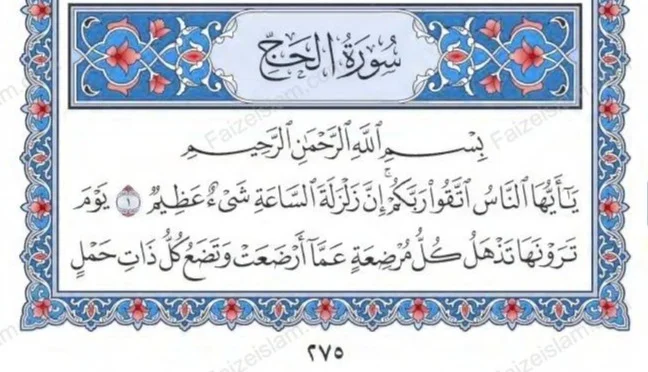 سُورَةُ الحَجِّ
بِسْمِ ٱللَّهِ ٱلرَّحْمَٰنِ ٱلرَّحِيمِ
يَٰٓأَيُّهَا ٱلنَّاسُ ٱتَّقُوا۟ رَبَّكُمْ ۚ إِنَّ زَلْزَلَةَ ٱلسَّاعَةِ شَىْءٌ عَظِيمٌ ١ يَوْمَ
تَرَوْنَهَا تَذْهَلُ كُلُّ مُرْضِعَةٍ عَمَّآ أَرْضَعَتْ وَتَضَعُ كُلُّ ذَاتِ حَمْلٍ
٢٧٥
Faizeislam.com